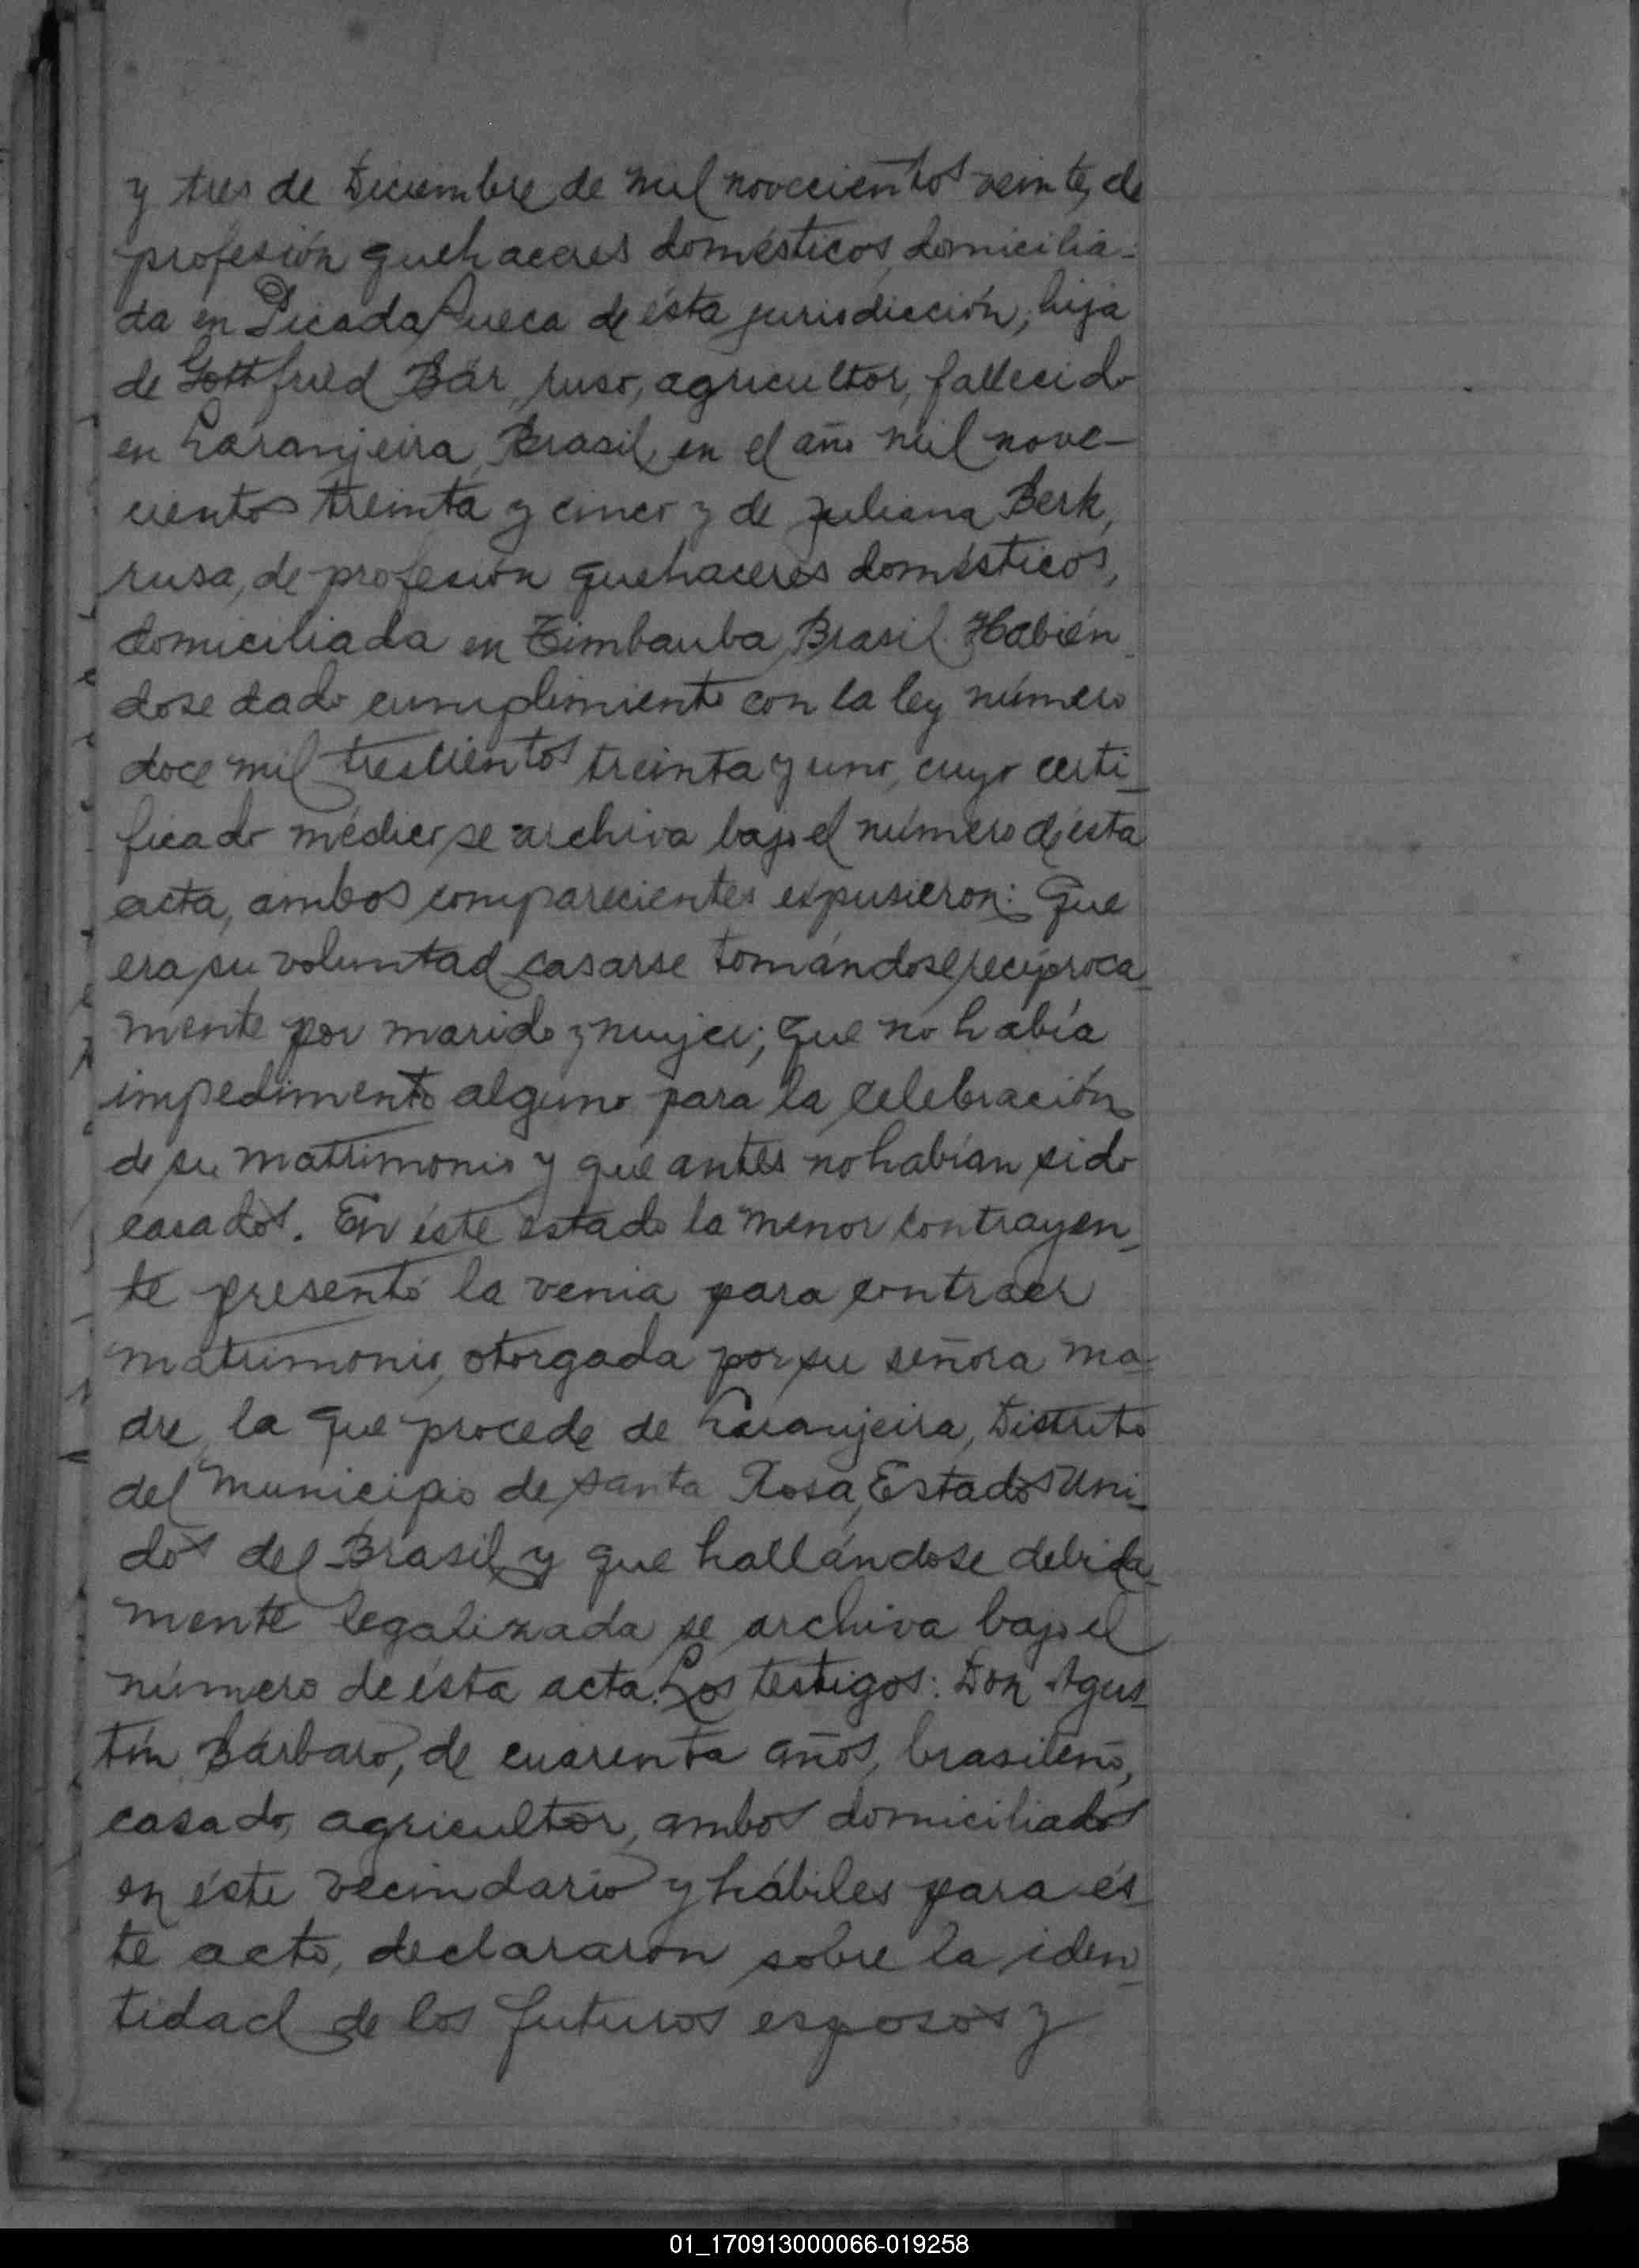 y tres de Diciembre de mil novecientos veinte, de
profesión quehaceres domésticos, domicilia-
da en Picada Sueca de ésta jurisdicción; hija
de Gottfried Bär, ruso, agricultor, fallecido
en Laranjeira, Brasil, en el año mil nove-
cientos treinta y cinco y de Juliana Berk,
rusa, de profesión quehaceres domésticos,
domiciliada en Timbauba, Brasil. Habién-
dose dado cumplimiento con la ley número
doce mil trescientos treinta y uno, cuyo certi-
ficado médico se archiva bajo el número de ésta
acta, ambos comparecientes expusieron: Que
era su voluntad casarse tomándose recíproca-
mente por marido y mujer; que no había
impedimento alguno para la celebración
de su matrimonio y que antes no habían sido
casados. En éste estado la menor contrayen-
te presentó la venia para contraer
matrimonio, otorgada por su señora ma-
dre, la que procede de Laranjeira, Distrito
del Municipio de Santa Rosa, Estados Uni-
dos del Brasil y que hallándose debida-
mente legalizada se archiva bajo el
número de ésta acta. Los testigos: Don Agus-
tín Bárbaro, de cuarenta años, brasileño,
casado, agricultor, ambos domiciliados
en éste vecindario y hábiles para és-
te acto, declararon sobre la iden-
tidad de los futuros esposos y
01_170913000066-019258